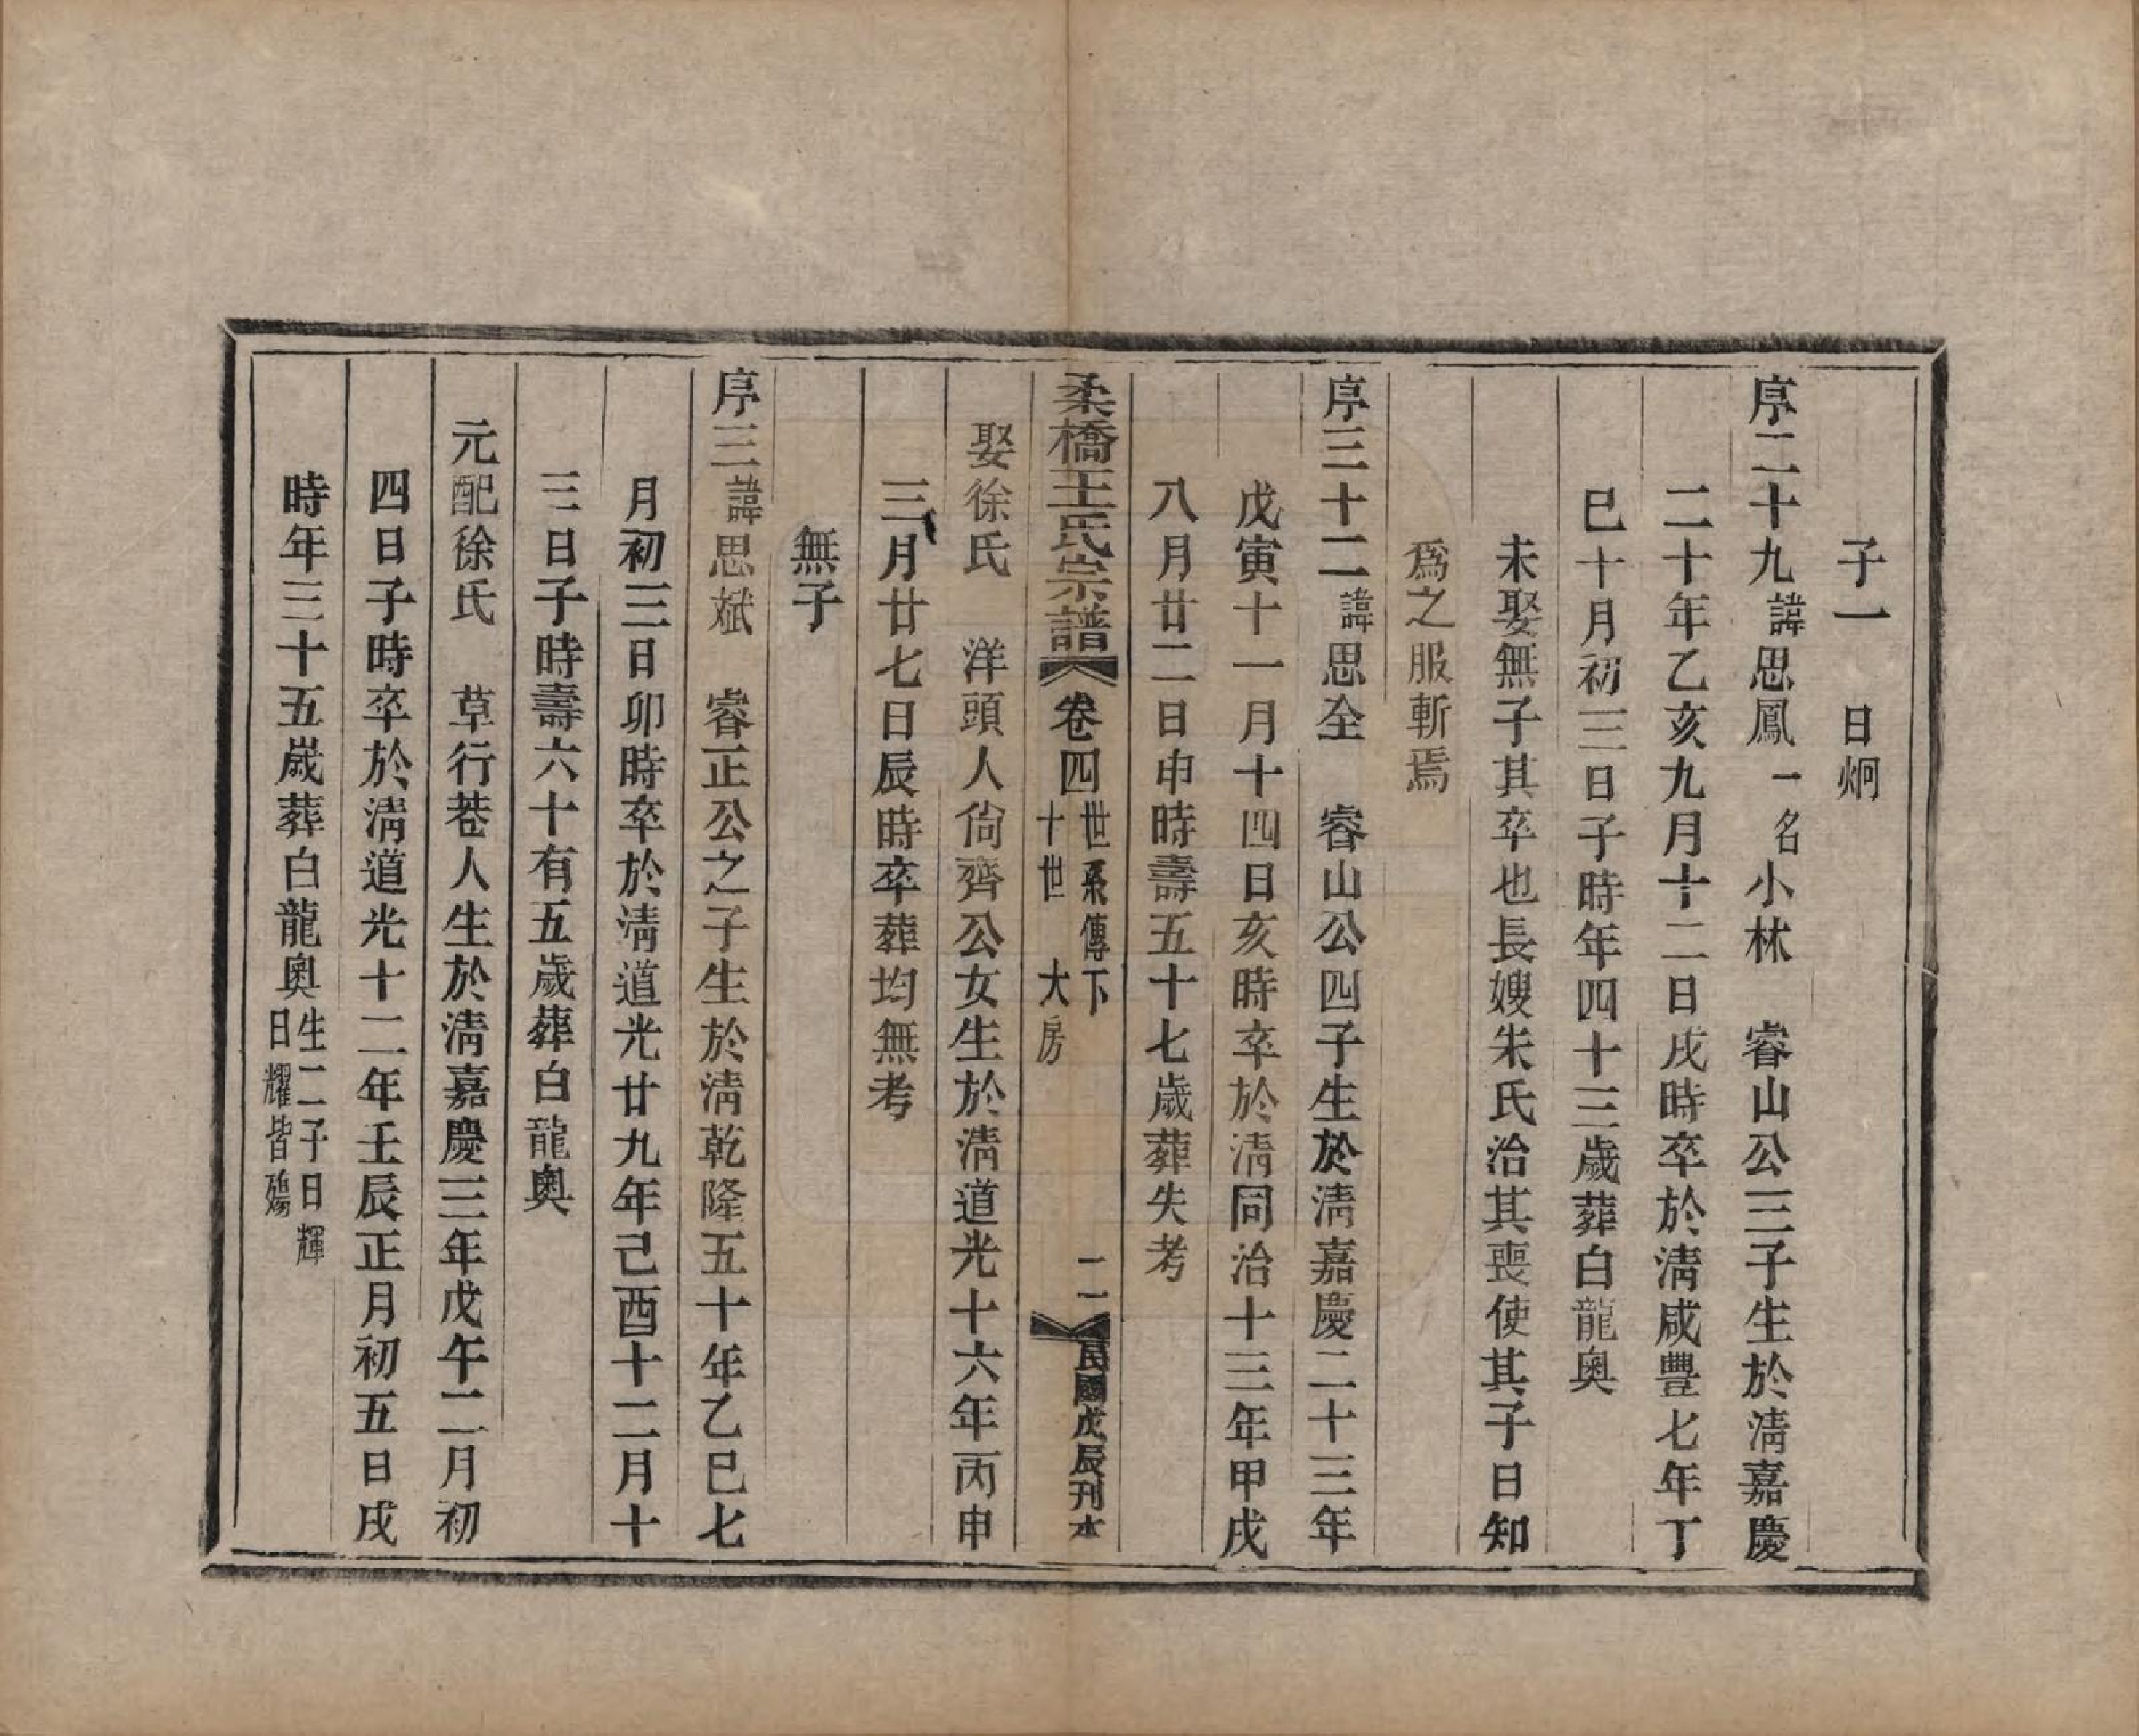 子一　日炯
序二十九諱思鳳一名小林　睿山公三子生於淸嘉慶
二十年乙亥九月十二日戌時卒於淸咸豐七年丁
巳十月初三日子時年四十三歲葬白龍奧
未娶無子其卒也長嫂朱氏治其喪使其子日知
爲之服斬焉
序三十二諱思全　睿山公四子生於淸嘉慶二十三年
戊寅十一月十四日亥時卒於淸同治十三年甲戌
八月廿二日申時壽五十七歲葬失考
柔橋王氏宗譜　卷四　世系傳下
十世　大房　二一　民國戊辰刊本
娶徐氏　洋頭人尙齊公女生於淸道光十六年丙申
三月廿七日辰時卒葬均無考
無子
序三諱思斌　睿正公之子生於淸乾隆五十年乙巳七
月初三日卯時卒於淸道光廿九年己酉十二月十
三日子時壽六十有五歲葬白龍奧
元配徐氏　草行巷人生於淸嘉慶三年戊午二月初
四日子時卒於淸道光十二年壬辰正月初五日戌
時年三十五歲葬白龍奧生二子日輝
日耀皆殤